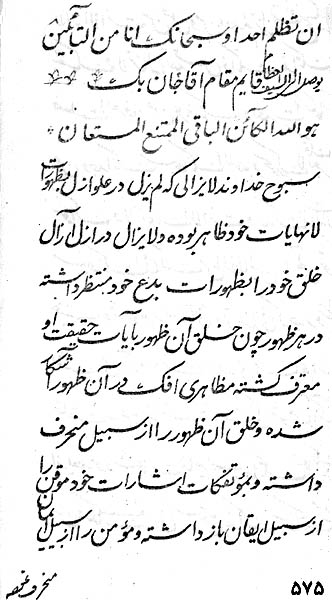 ان تظلم احدا و سبحانک انا من التائبین
قایم مقام آقا جان بک
هو الله الکائن الباقی الممتنع المستعان
سبوح خداوند لایزالی که لم یزل در علو ازل بظهورات
لانهایات خود ظاهر بوده و لایزال در ازل آزال
خلق خود را بظهورات بدع خود منتظر داشته
در هر ظهور چون خلق آن ظهور بآیات حقیقت او
معترف گشته مظاهری افک در آن ظهور آشکار
شده و خلق آن ظهور را از سبیل منحرف
داشته و بمؤتفکات اشارات خود موقن را
از سبیل ایقان باز داشته و مؤمن را از سبیل ایمان
منحرف
۵۷۵